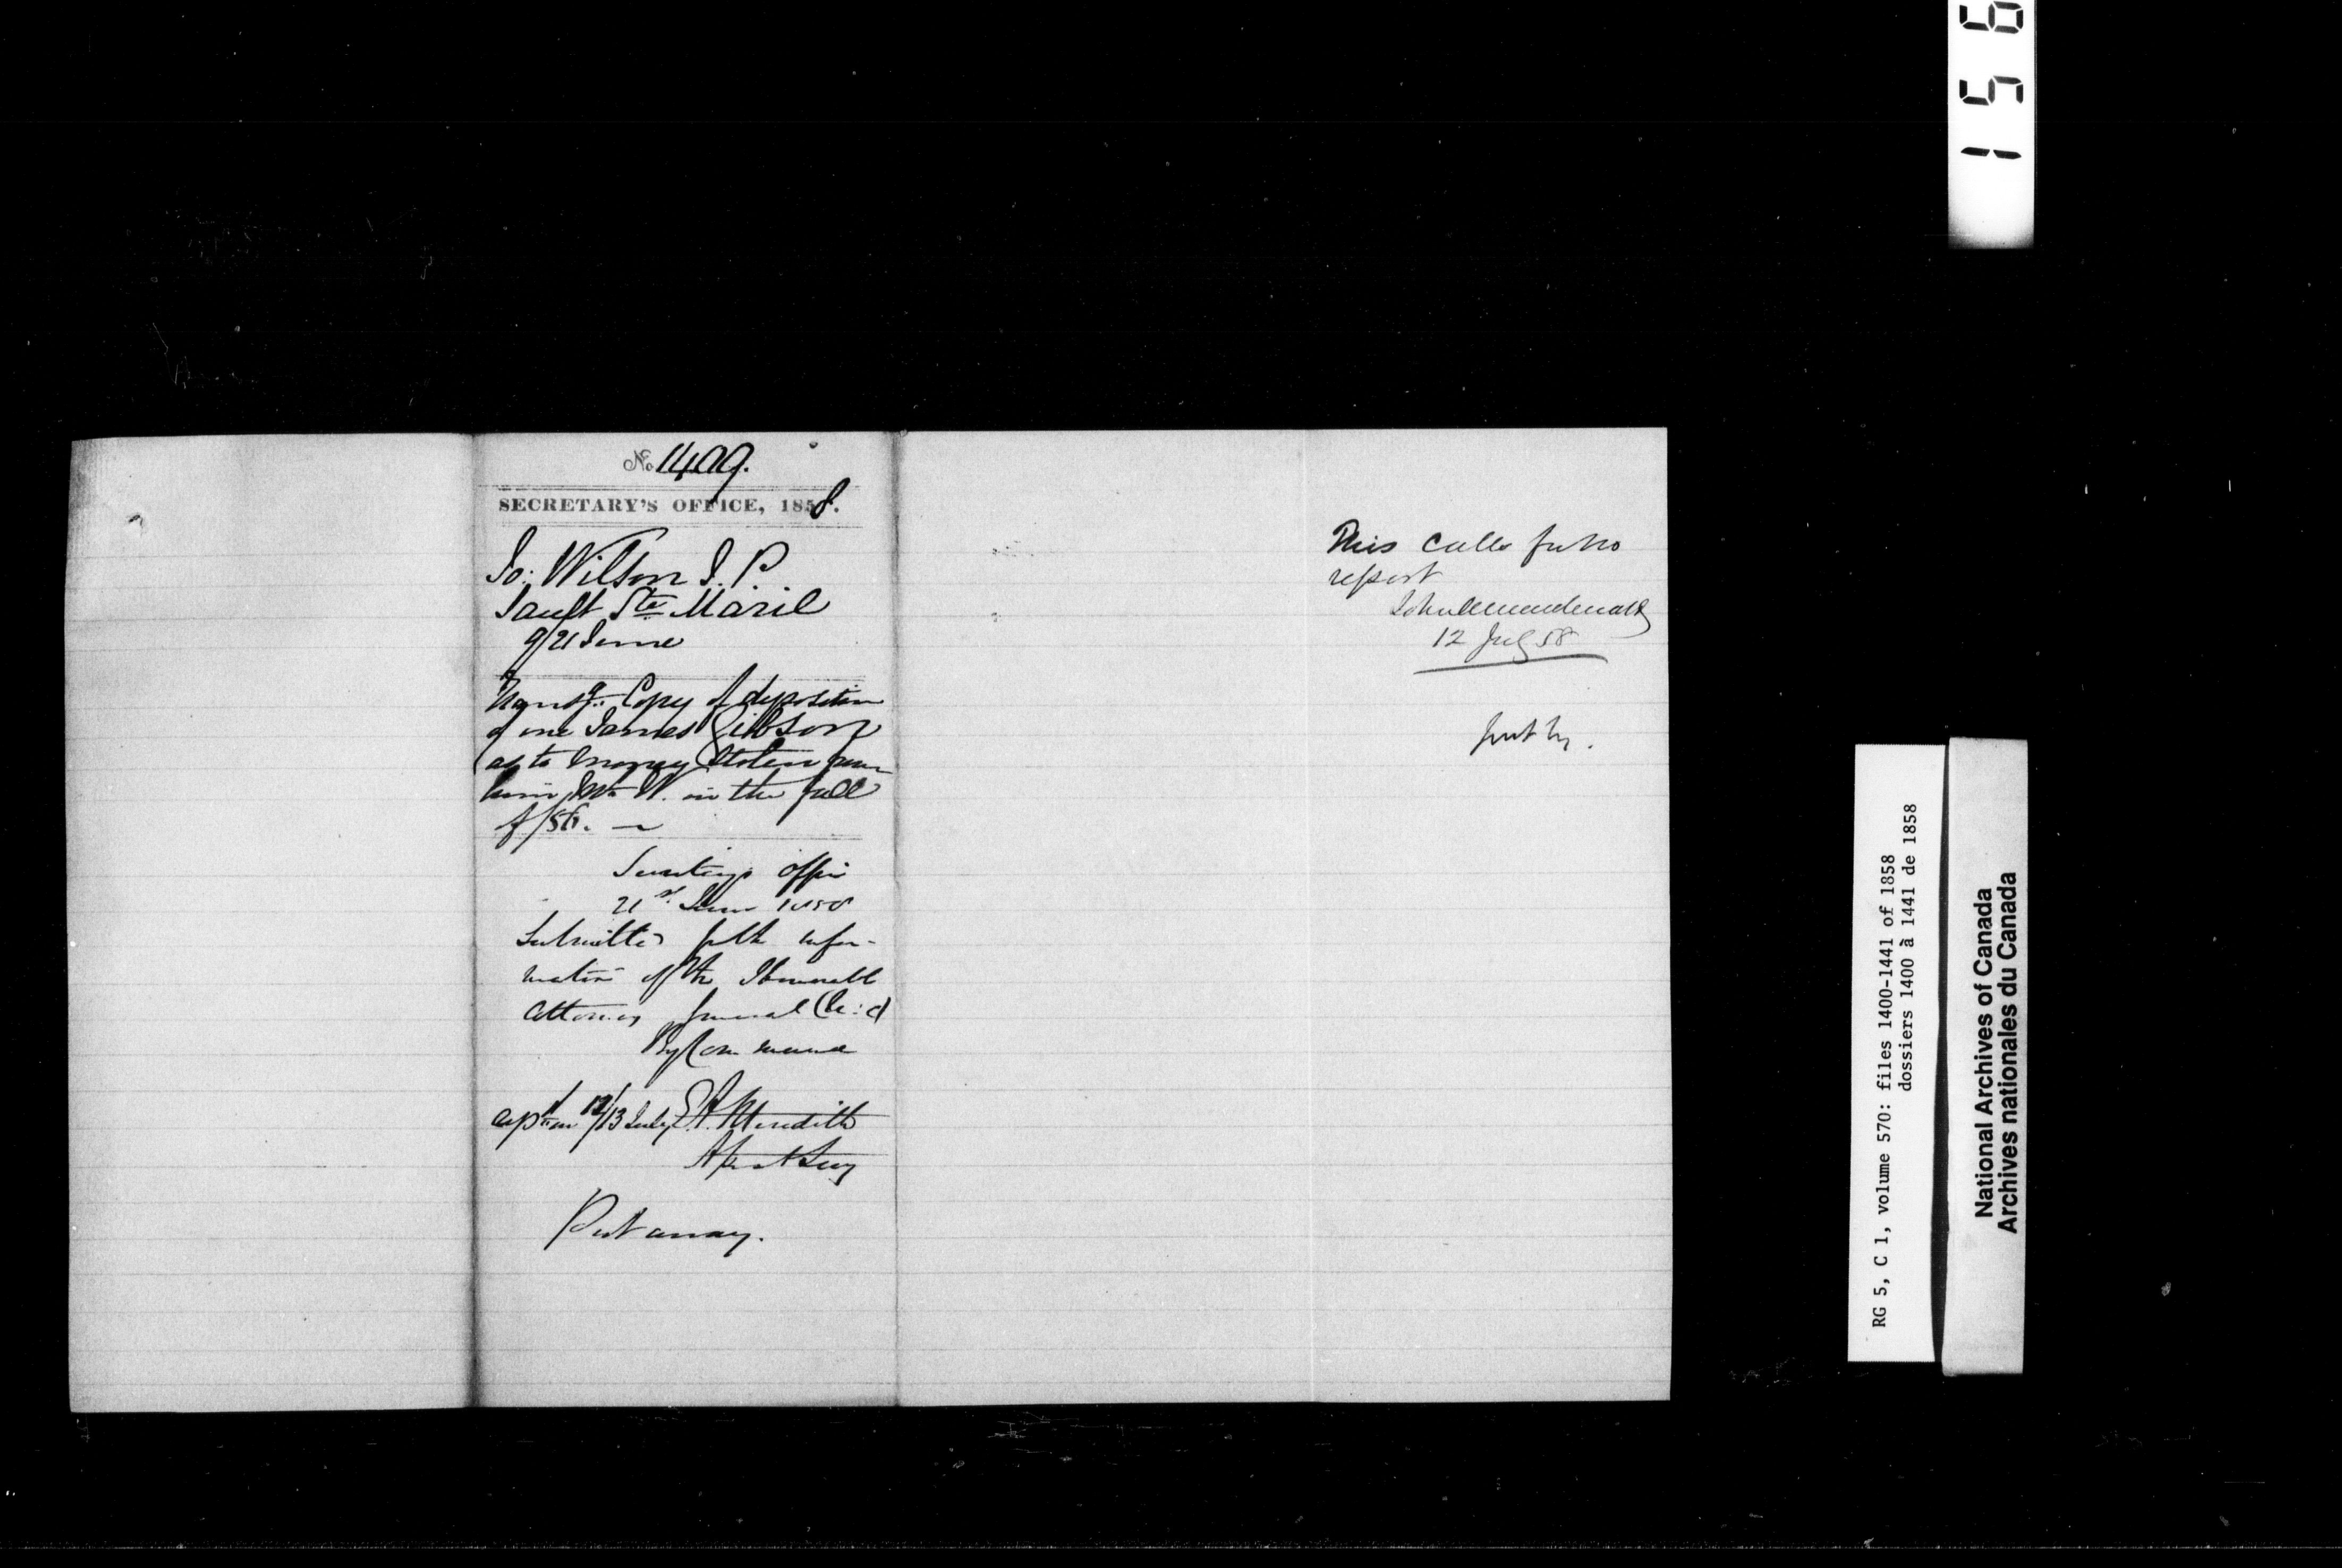 No 1409.
SECRETARY'S OFFICE, 1858.
Jo: Wilson J. P.
Sault Ste Marie
9/21 June
Transg. Copy of deposition
of one James Gibson
as to money stolen from
him, Mr W. in the fall
of /56. —
Secretary's Office
21st June 1858
Submitted for the infor-
mation of the Honorable
Attorney General (U: C)
By Command
E. A. Meredith
Asst Secy
12/13 July
Put away.
This calls for no
report
John A Macdonald
12 July 58
Put by.
156
RG 5, C 1, volume 570: files 1400-1441 of 1858
dossiers 1400 à 1441 de 1858
National Archives of Canada
Archives nationales du Canada